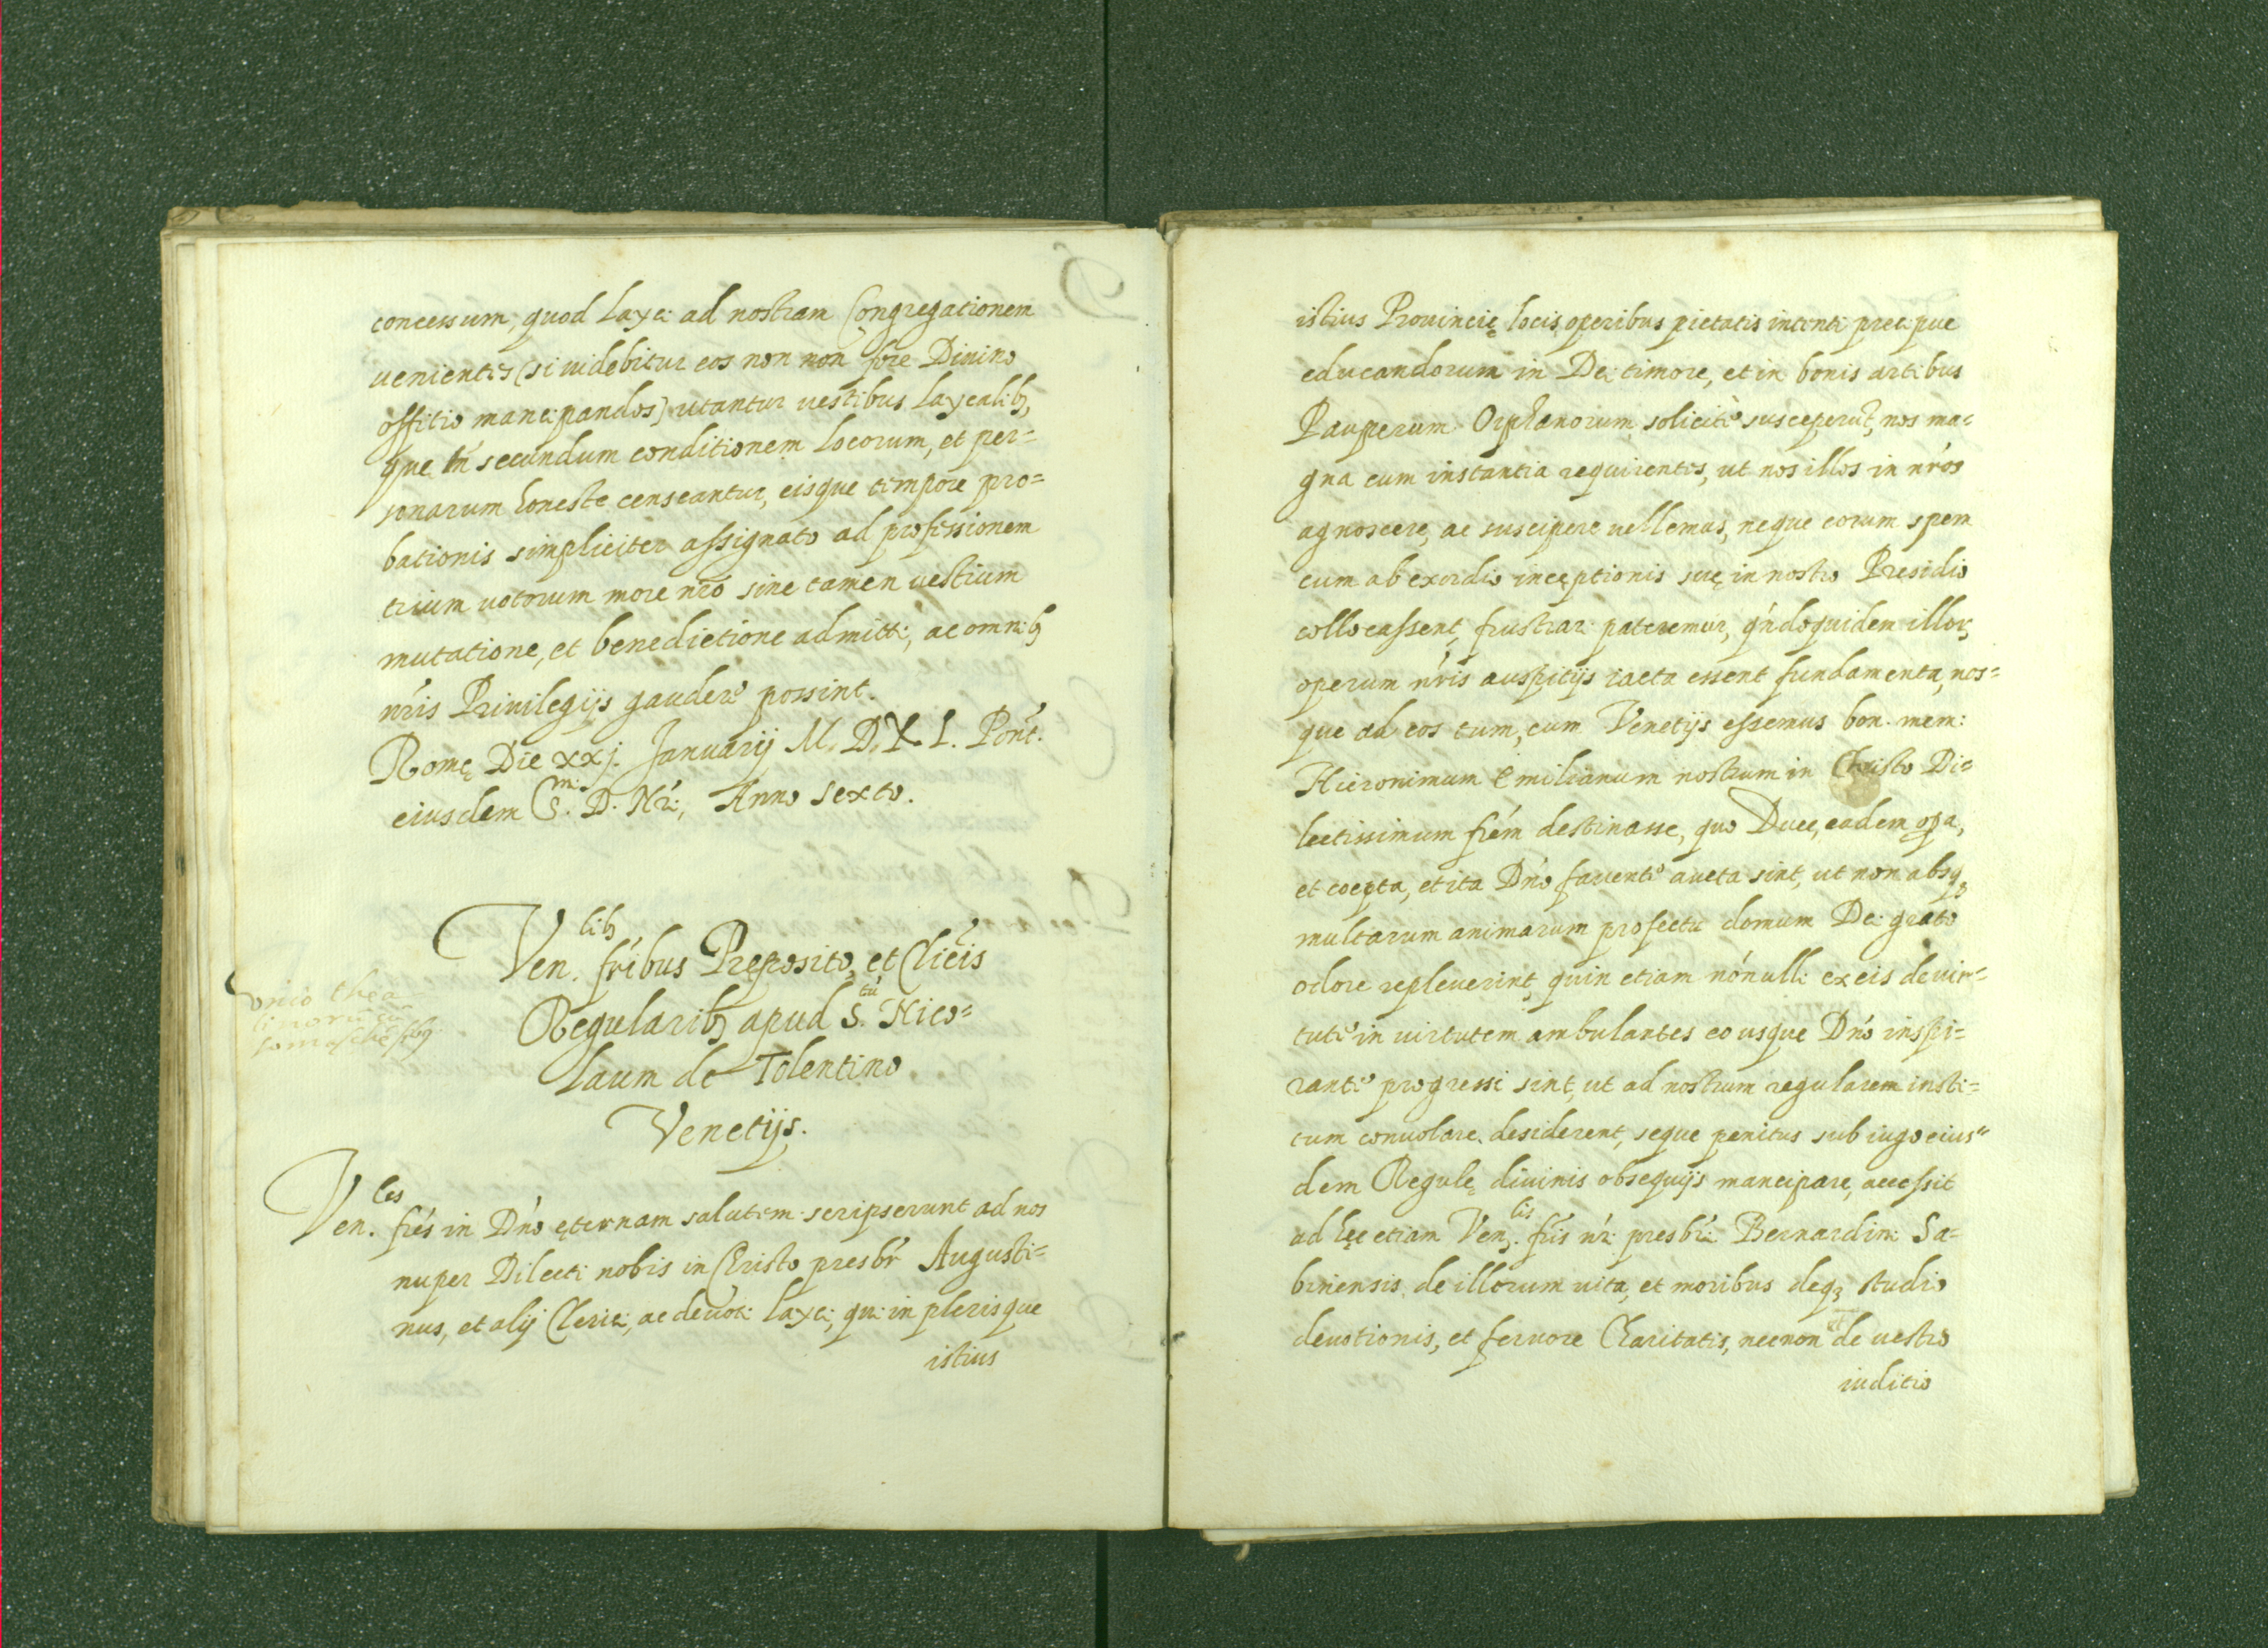 concessum, quod layci ad nostram Congregationem
uenientes (si uidebitur eos non non fore Diuino
offitio mancipandos) utantur uestibus laycalib9,
que secundum conditionem locorum, et per=
sonarum honeste censeantur, eisque tempore pro=
bationis simpliciter assignato ad professionem
trium uotorum more nr̃o sine tamen uestium
mutatione, et benedictione admitti, ac omnib9
nr̃is Priuilegijs gaudere possint.
Romę Die xxj. Januarij M. D. X. L. Pont̃.
eiusdem S.mi D. Nr̃i, Anno sexto.
Ven.lib9 fr̃ibus Preposito, et Clicĩs
Regularib9 apud S.tũ Nico=
laum de Tolentino
Venetijs.
vnio thea
tinorũ cũ
somaschẽsib9
Ven.les fr̃es in Dñο ęternam salutem. scripserunt ad nos
nuper Dilecti nobis in Christo presbr̃ Augusti=
nus, et alij Clerici, ac deuoti layci, qui in plerisque
istius
istius Prouincię locis, operibus pietatis intenti precipue
educandorum in Dei timore, et in bonis artibus
Pauperum Orphanorum solicite susceperũt, nos ma=
gna cum instantia requirentes, ut nos illos in nr̃os
agnoscere, ac suscipere uellemus, neque eorum spem
cum ab exordio inceptionis suę in nostro Presidio
collocassent, frustrari pateremur, qñdoquidem illor,
operum nr̃is auspitijs iacta essent fundamenta, nos=
que ad eos tum, cum Venetijs essemus bon. mem:
Hieronimum Emilianum nostrum in Christo Di=
lectissimum fr̃em destinasse, quo Duce, eadem opa,
et coepta, et ita Dño fauente aucta sint, ut non absq3
multarum animarum profectu domum Dei grato
odore repleuerint, quin etiam nõnulli ex eis de uir=
tute in uirtutem ambulantes eo usque Dño inspi=
rante progressi sint, ut ad nostrum regularem insti=
tum conuolare desiderent, seque penitus sub iugo eius"
dem Regulę diuinis obsequijs mancipare, accessit
ad hęc etiam Ven.lis fr̃is nr̃i presbr̃i Bernardini Sa=
binensis de illorum uita, et moribus deq3 studio
deuotionis, et feruore Charitatis, necnon et de uestro
iuditio